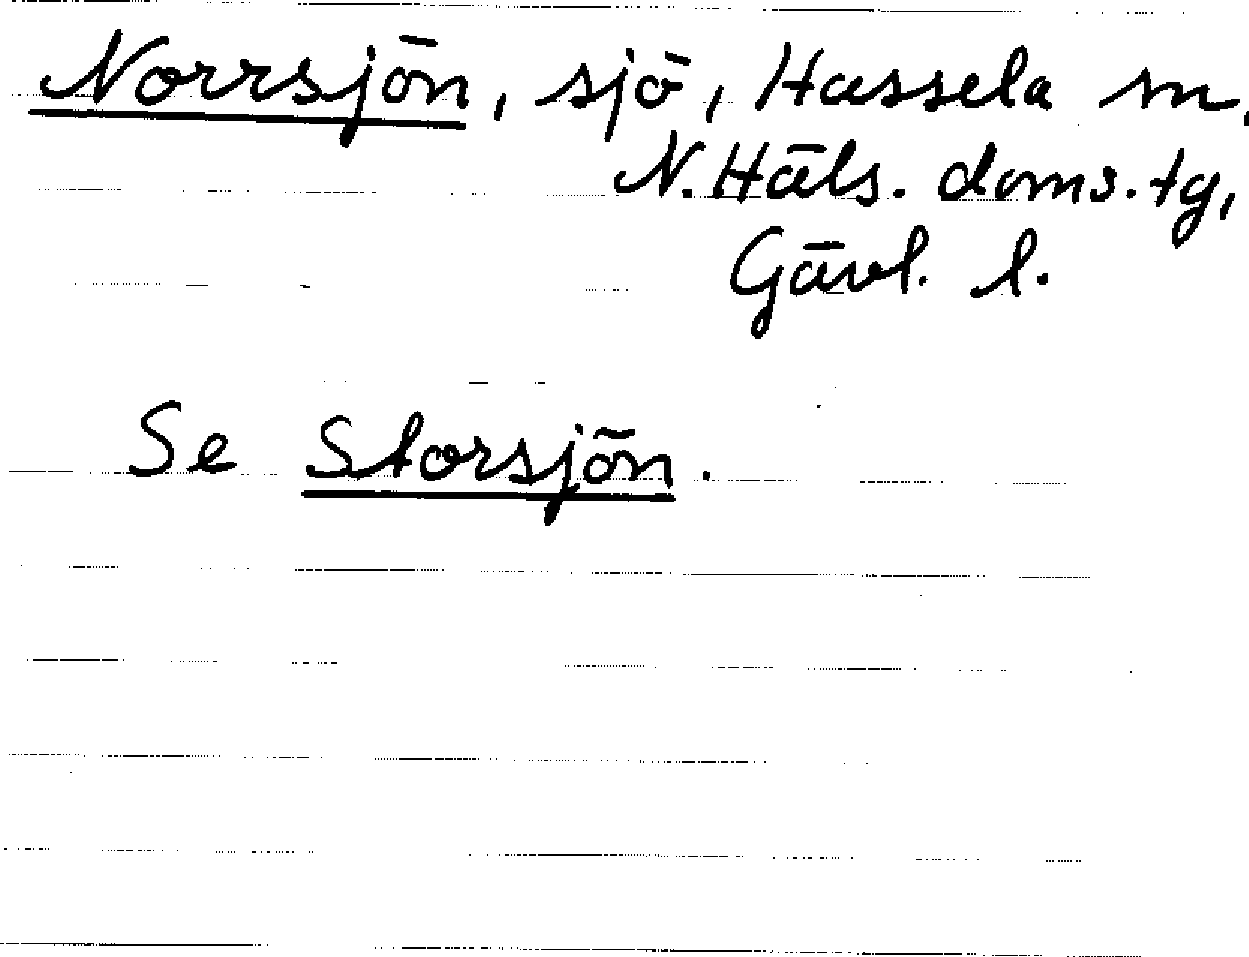 Norrsjön, sjö, Hassela sn,
N. Häls. doms. tg,
Gävl. l.
Se Storsjön.